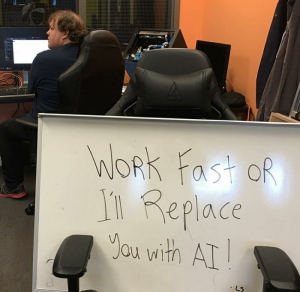 Work Fast or
I'll Replace
you with AI!
-LS